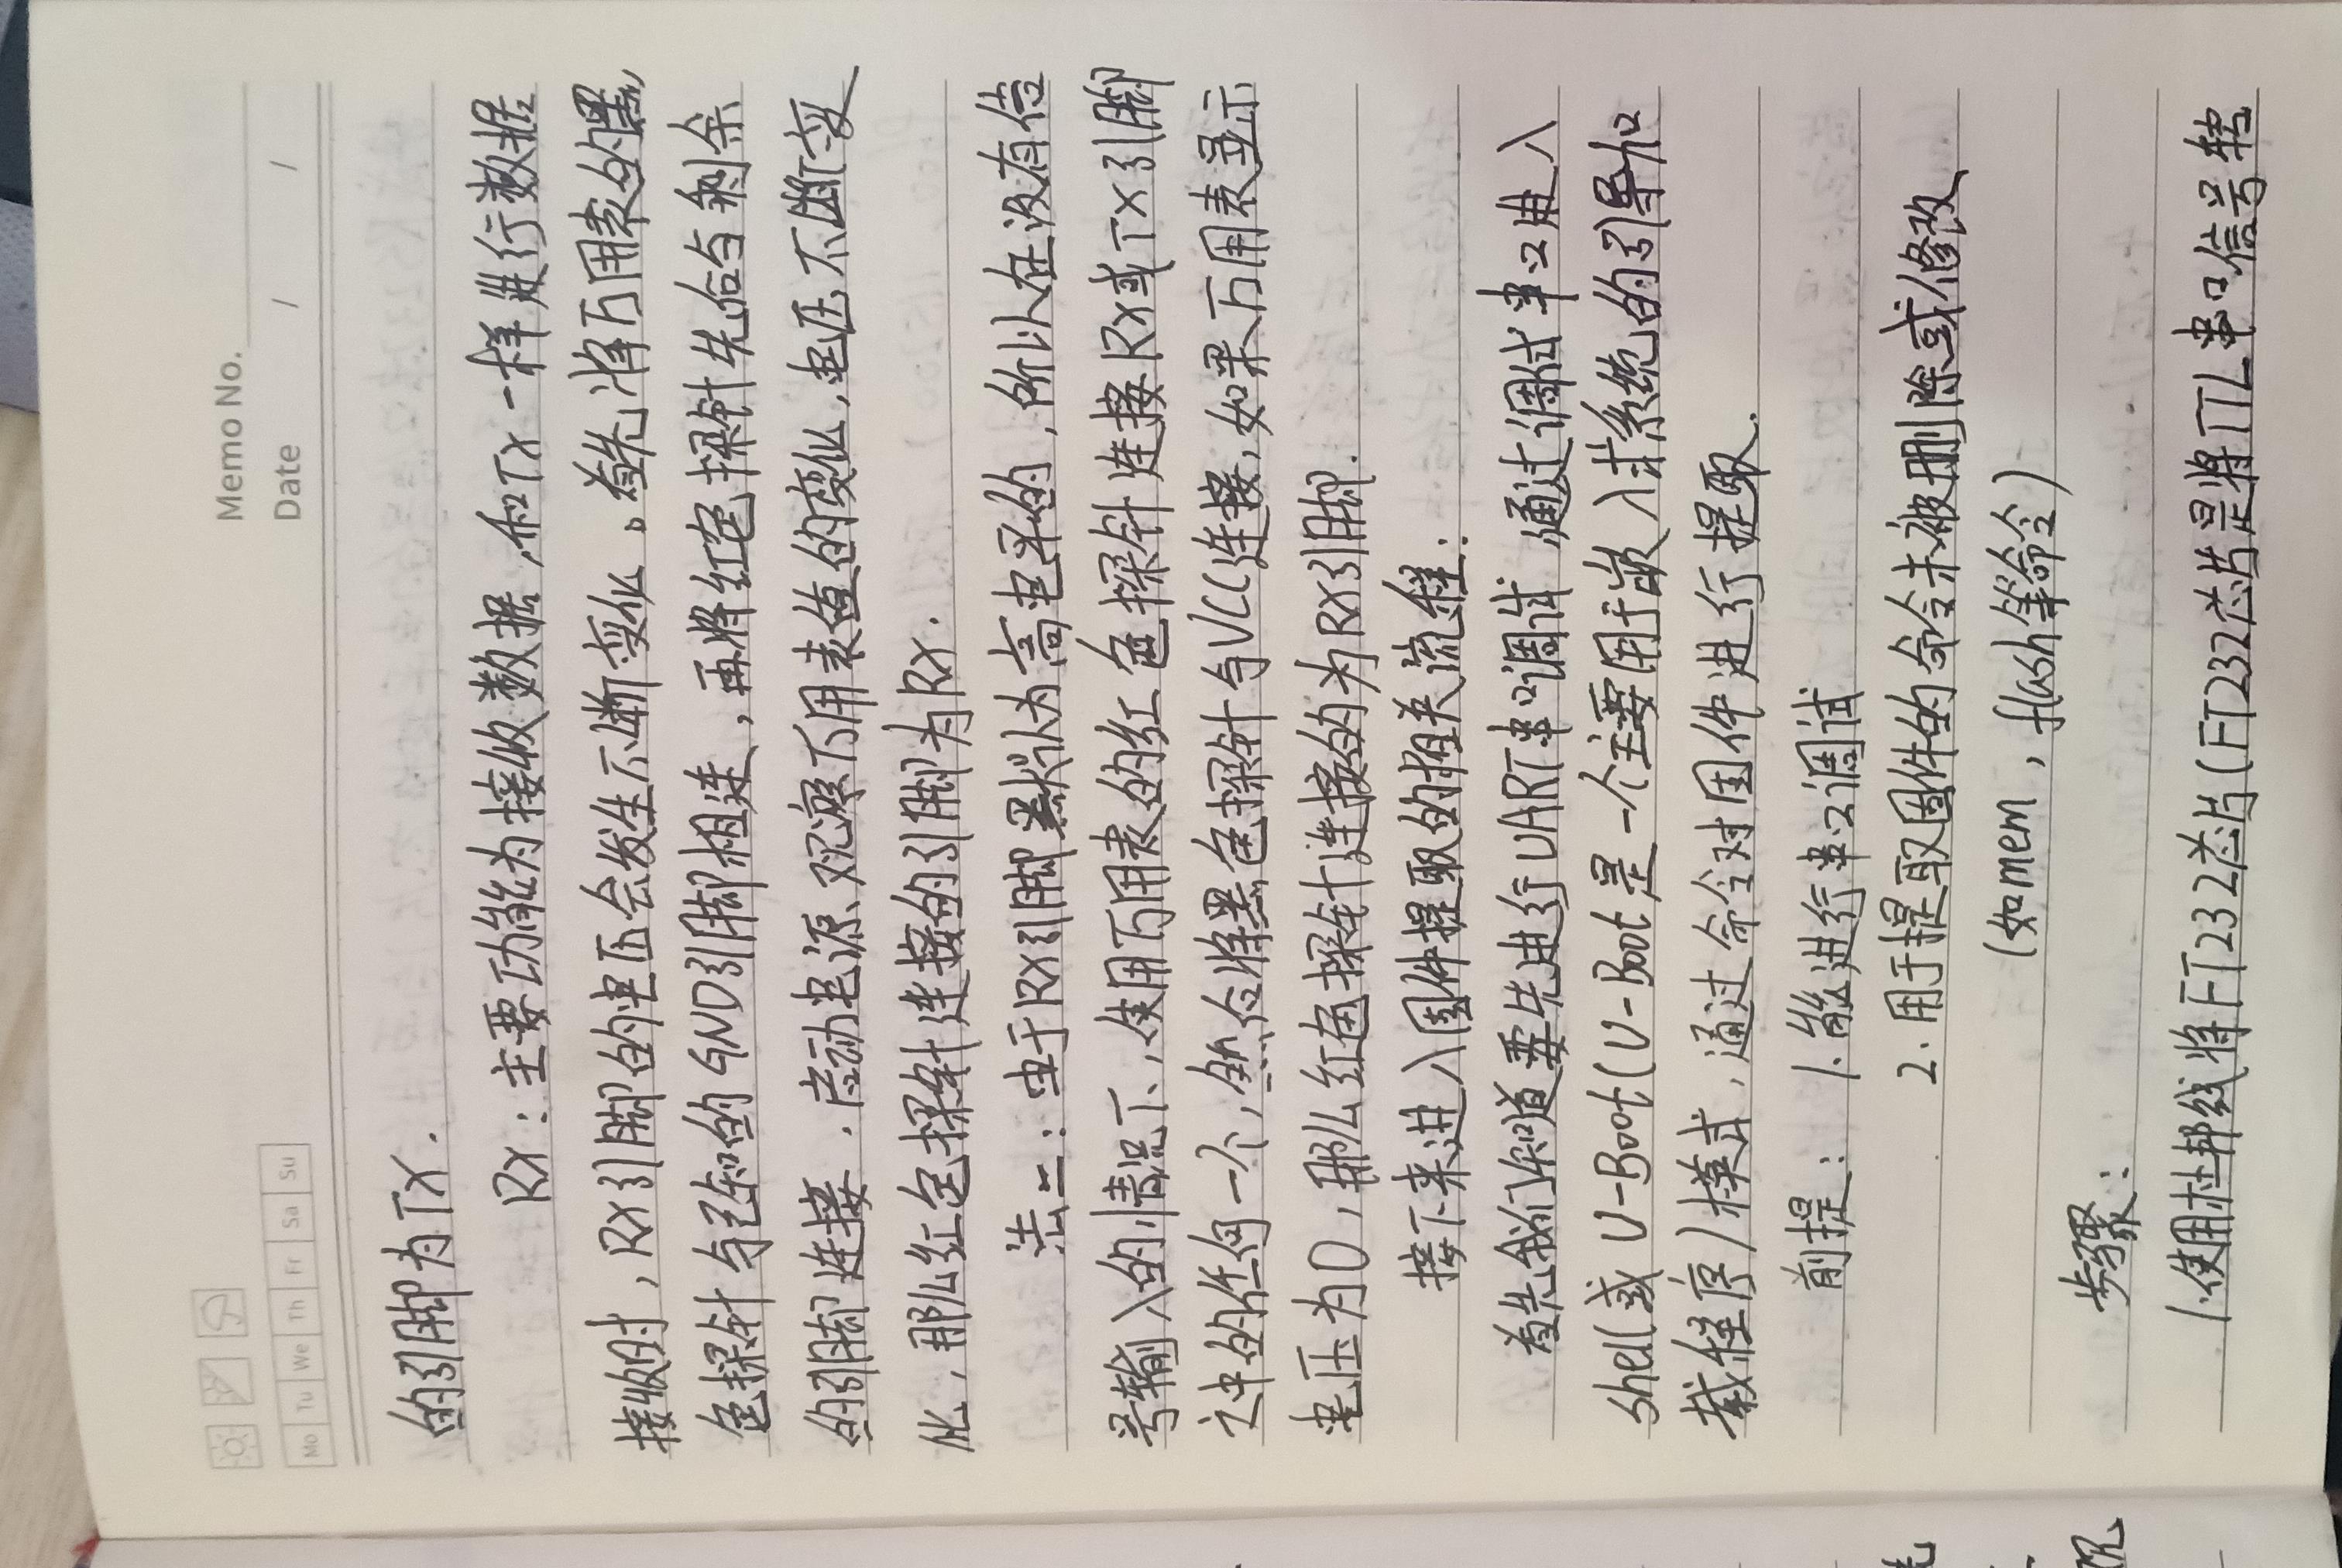 Memo No.
Mo Tu We Th Fr Sa Su
Date / /
的引脚为Tx.
Rx：主要功能为接收数据,和Tx一样进行数据
接收时,Rx引脚的电压会发生不断变化。首先将万用表的黑
色探针与已知的GND引脚相连,再将红色探针先后与剩余
的引脚连接.启动电源、观察万用表值的变化,电压不断变
化,那么红色探针连接的引脚为Rx.
法二：由于Rx引脚默认为高电平的,所以在没有信
号输入的情况下,使用万用表的红色探针连接Rx或Tx引脚
之中的任何一个,然后将黑色探针与VCC连接,如果万用表显示
电压为0,那么红色探针连接的为Rx引脚.
接下来进入固件提取的相关流程：
首先我们知道要先进行UART串口调试,通过调试串口进入
shell或U-Boot(U-Boot是一个主要用于嵌入式系统的引导加
载程序)模式,通过命令对固件进行提取.
前提：1.能进行串口调试
2.用于提取固件的命令未被删除或修改、
(如mem,flash等命令)
步骤：
1.使用杜邦线将FT232芯片(FT232芯片是将TTL串口信号转